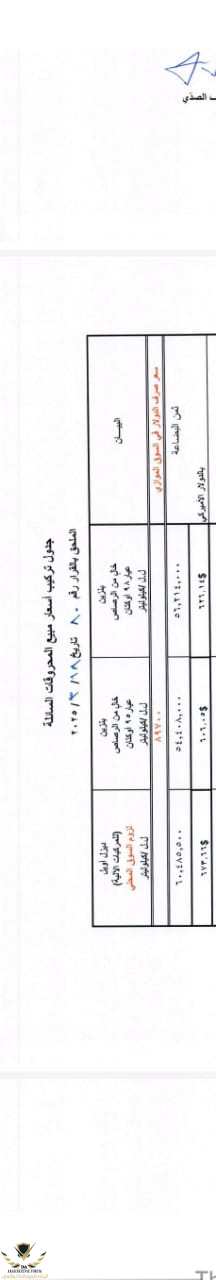 ف الصدّي
جدول تركيب أسعار مبيع المحروقات السائلة
الملحق بالقرار رقم ٨٠ تاريخ ١٨/٣/٢٠٢٥
البيــــان
بنزين
خال من الرصاص
عيار ٩٨ اوكتان
ل.ل/كيلوليتر
بنزين
خال من الرصاص
عيار ٩٥ اوكتان
ل.ل/كيلوليتر
ديزل أويل
(للمركبات الآلية)
لزوم السوق المحلي
ل.ل/كيلوليتر
سعر صرف الدولار في السوق الموازي ٨٩٧٠٠
ثمن البضاعة ٥٦,٢١٤,٠٠٠ ٥٤,٤٠٨,٠٠٠ ٦٠,٤٨٥,٥٠٠
بالدولار الأميركي ٦٢٦,١٤$ ٦٠٦,٠٥$ ٦٧٣,٦٦$
ARAB DEFENSE FORUM